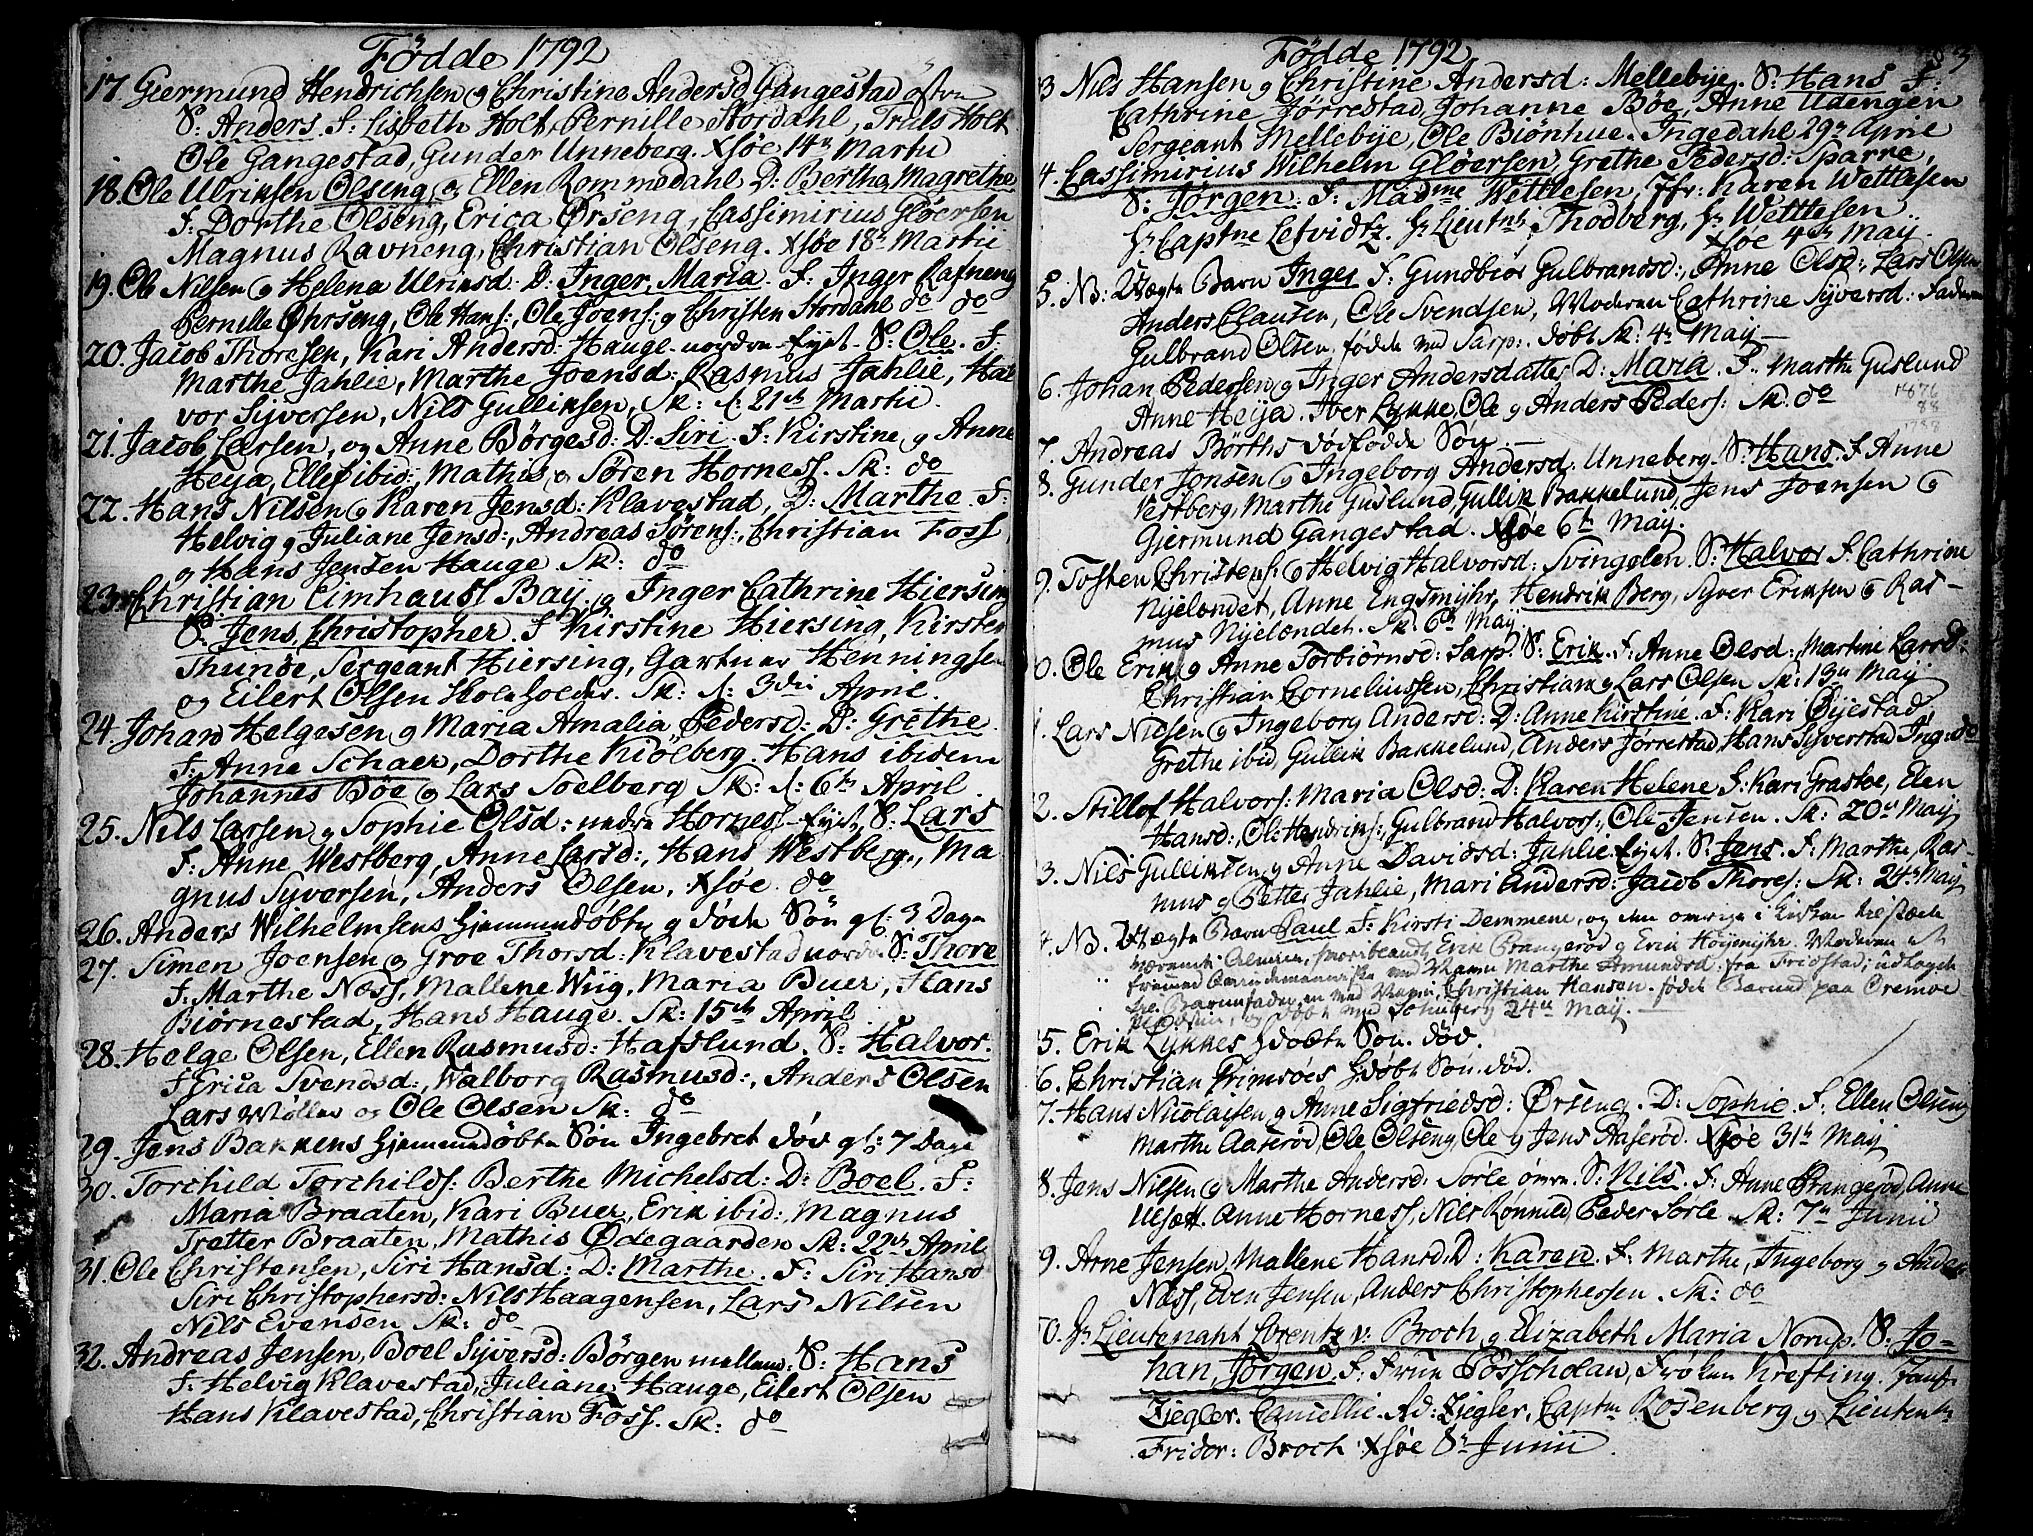 Fødde 1792
17. Giermund Hendrichsen og Christine Andersd Gangestad østre
S: Anders. F: Lisbeth Holt, Pernille Stordahl, Truls Holt
Ole Gangestad, Gunder Unneberg. Xsøe 14de Martii
18. Ole Ulriksen Olseng, og Ellen Rommedahl D: Bertha Magrethe
F: Dorthe Olseng, Erica Ørseng, Cassimirius Gløersen
Magnus Ravneng, Christian Olseng. Xsøe 18de Martii
19. Ole Nilsen og Helena Ulriksd: D: Inger Maria. F: Inger Rafneng
Pernille Øhrseng, Ole Hans:, Ole Joens: og Christen Stordahl do do
20. Jacob Thoresen, Kari Andersd: Hauge nordre eyet. S: Ole. F:
Marthe Jahlie, Marthe Joensd: Rasmus Jahlie, Hal
vor Syversen, Nils Gulliksen, Sk: d: 21de Martii.
21. Jacob Larsen, og Anne Børgesd: D: Siri. F: Kirstine og Anne
Heija, Ellef ibid:, Mathis og Søren Horness. Sk: do
22. Hans Nilsen og Karen Jensd: Klavestad, D: Marthe. F:
Helvig og Juliane Jensd:, Andreas Sørens:, Christian Foss
og Hans Jensen Hauge Sk: do
23. Christian Eimhaus Baij og Inger Cathrine Hiersing
S: Jens Christopher. F Kirstine Hiersing, Kirsten
Thunde, Sergeant Hiersing, Gartner Henningsen
og Eilert Olsen Skoeholder. Sk: d: 3die April.
24. Johan Helgesen og Maria Amalia Pedersd: D: Grethe
F: Anne Schaer, Dorthe Kiølberg. Hans ibidem
Johannes Bøe og Lars Soelberg Sk: d: 6te April.
25. Nils Larsen og Sophie Olsd: nedre Horness eyet S: Lars
F: Anne Westberg, Anne Larsd:, Hans Westberg, Ma
gnus Syversen, Anders Olsen, Xsøe. do
26. Anders Wilhelmsens hjemmedøbte og døde Søn gl: 3 Dage
27. Simen Joensen og Groe Thorsd: Klavestad nordre S: Thore
F: Marthe Næss, Mallene Wiig, Maria Buer, Hans
Biørnestad, Hans Hauge. Sk: 15de April
28. Helge Olsen, Ellen Rasmusd: Hafslund. S: Halvor.
F Erica Svendsd:, Walborg Rasmusd:, Anders Olsen
Lars Møller og Ole Olsen Sk: do
29. Jens Bakkens hjemmedøbte Søn Ingebret død gl: 7 Dage
30. Torchild Torchilds: Berthe Michelsd: D: Boel. F:
Maria Braaten, Kari Buer, Erik ibid: Magnus
Tretter Braaten, Mathis Ødegaarden Sk: 22de April
31. Ole Christensen, Siri Hansd: D: Marthe. F: Siri Hansd
Siri Christophersd: Nils Haagensen, Lars Nilsen
Nils Evensen Sk: do
32. Andreas Jensen, Boel Syversd: Børgen mellem: S: Hans
F: Helvig Klavestad, Juliane Hauge, Eilert Olsen
Hans Klavestad, Christian Foss. Sk: do
Fødde 1792
3 Nils Hansen og Christine Andersd: Mellebye. S: Hans F:
Cathrine Jørrestad, Johanne Bøe, Anne Udengen
Sergeant Mellebye, Ole Biønhue. Ingedahl 29de April
4. Cassimirius Wilhelm Gløersen, Grethe Pedersd: Sparre,
S: Jørgen. F: Madme Wettlesen, Jfr: Karen Wettlesen
Hr Captne Lefvidtz. Hr Lieutnt: Thodberg, Hr Wettlesen..
Xsøe 4de Maij.
5. NB: Uægte Barn Inger F: Gundbiør Gulbrandsd:, Anne Olsd: Lars Olsen
Anders Clausen, Ole Svendsen, Moderen Cathrine Syversd: Faderen
Gulbrand Olsen, fødde ved Sarp:. døbt Sk: 4de Maij
6. Johan Pedersen og Inger Andersdatter D: Maria. F. Marthe Guslund
Anne Heija. Iver Lykke, Ole og Anders Peders: Sk. do
1876
88
1788
7. Andreas Børths dødfødde Søn.
8. Gunder Jonsen og Ingeborg Andersd: Unneberg. S: Hans. F Anne
Vestberg, Marthe Guslund, Gullik Bakkelund, Jens Joensen og
Gjermund Gangestad. Xsøe 6te Maij.
9. Tosten Christens: og Helvig Halvorsd: Svingelen. S: Halvor F Cathrine
Nyelændet, Anne Engsmyhr, Hendrik Berg, Syver Eriksen og Ras-
mus Nyelændet. Sk: 6te Maij
0. Ole Erik: og Anne Torbiørnsd: Sarp. S: Erik. F: Anne Olsd:, Marthe Larsd:
Christian Corneliussen, Christian og Lars Olsen Sk: 13de Maij
1. Lars Nilsen og Ingeborg Andersd: D: Anne Kirstine. F: Kari Øyestad,
Grethe ibid, Gullik Bakkelund, Anders Jørrestad, Hans Syverstad Ing: do
2. Stillof Halvors: Maria Olsd: D: Karen Helene F: Kari Grastoe, Elen
Hansd:, Ole Hendriks:, Gulbrand Halvors:, Ole Jensen. Sk: 20de Maij
3. Nils Gulliksen og Anne Davidsd: Jahlie eyet. S: Jens. F: Marthe, Ras
mus og Petter Jahlie, Mari Andersd: Jacob Thores: Sk: 24de Maij
4. NB. Uægte Barn Paul. F: Kirsti Demmene, og den øvrige i Kirken tilstæde
værende Almue, Erik Prangerød og Erik Høijemyhr. Moderen et
fremmed ved Navn Marthe Amundsd. fra Fridstad; udlagde
til Barnefader, en ved Navn Christian Hansen. fødde Barnet paa Oremoe
24de Maij.
5. Erik Lykkes hdøbte Søn. død.
6. Christian Grimsøes hdøbte Søn. død.
7. Hans Nicolaisen og Anne Sigfriedsd: Ørseng. D: Sophie. F. Ellen Olseng
Marthe Aaserød, Ole Olseng, Ole og Jens Aaserød. Xsøe 31te Maij
8. Jens Nilsen og Marthe Andersd. Sørle øvre. S: Nils. F: Anne Prangerød, Anne
Ulsæt. Anne Horness, Nils Rønnild, Peder Sørle. Sk: 7de Junii
9. Arne Jensen, Mallene Hansd. D: Karen. F: Marthe, Ingeborg og Anders
Næss, Even Jensen, Anders Christophersen. Sk: do
0. Hr Lieutenant Lorentz v: Broch og Elizabeth Maria Norup. S: Jo-
han Jørgen. F: Frue Posscholan, Frøken Krefting. Jomf.
Ziegler. Camellie. Ad: Ziegler, Captn Rosenberg og Lieutent
Fridor: Broch Xsøe 8de Junii.